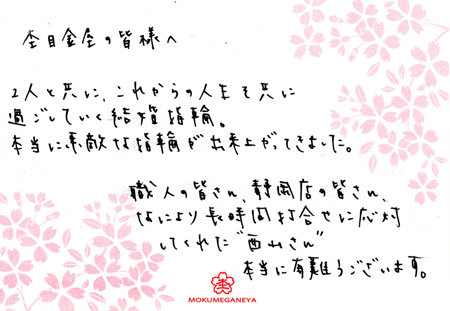 杢目金屋の皆様へ
2人と共に、これからの人生を共に
過ごしていく結婚指輪。
本当に素敵な指輪が出来上がってきました。
職人の皆さん、静岡店の皆さん、
なにより長時間打合せに応対
してくれた"西山さん"
本当に有難うございます。
MOKUMEGANEYA